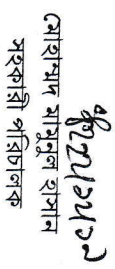 মোহাম্মদ মামুনুল হাসান
সহকারী পরিচালক